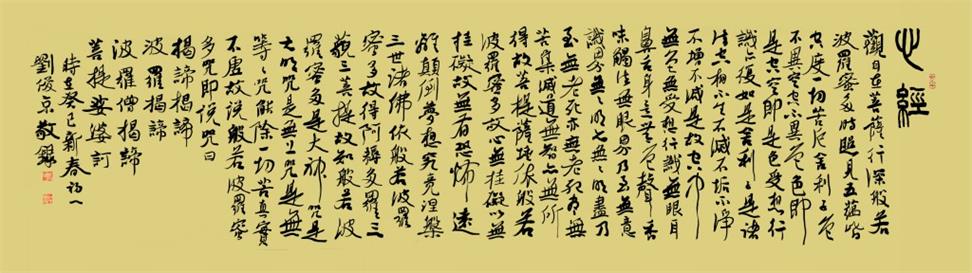 心經
觀自在菩薩行深般若
波羅蜜多時照見五蘊皆
空度一切苦厄舍利子色
不異空空不異色色即
是空空即是色受想行
識亦復如是舍利子是諸
法空相不生不滅不垢不淨
不增不減是故空中
無色無受想行識無眼耳
鼻舌身意無色聲香
味觸法無眼界乃至無意
識界無〻明亦無〻明盡乃
至無老死亦無老死盡無
苦集滅道無智亦無所
得故菩提薩埵依般若
波羅蜜多故心無挂礙以無
挂礙故無有恐怖遠
離顛倒夢想究竟涅槃
三世諸佛依般若波羅
蜜多故得阿耨多羅三
藐三菩提故知般若波
羅蜜多是大神咒是
大明咒是無上咒是無
等〻咒能除一切苦真實
不虛故說般若波羅蜜
多咒即說咒曰
揭諦揭諦
波羅揭諦
波羅僧揭諦
菩提娑婆訶
時在癸巳新春初八
劉俊京敬錄